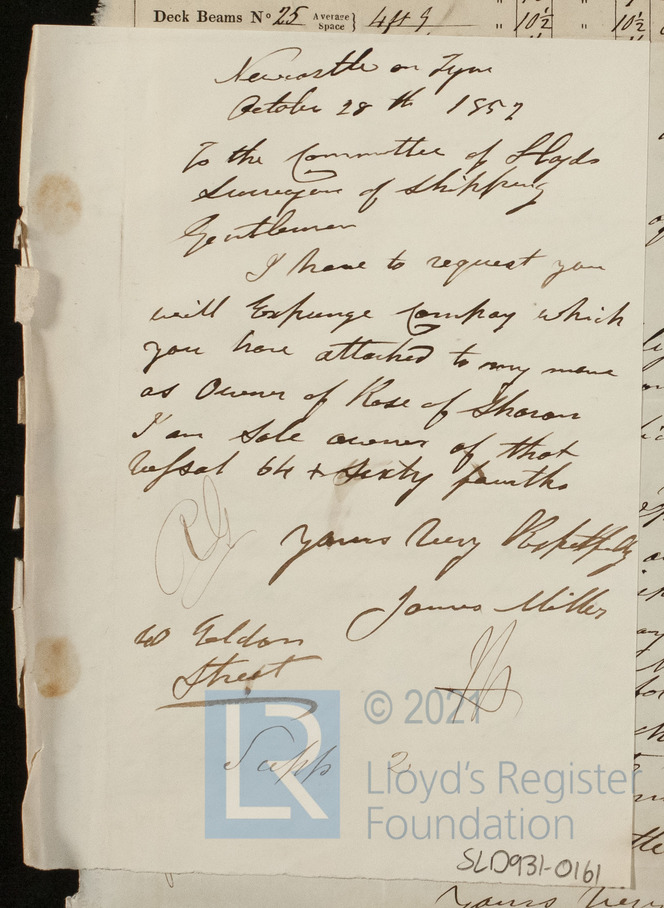 Deck Beams No 25 Average Space } 4ft 9 " 10½ " 10½
Newcastle on Tyne
October 28 th 1857
To the Committee of Lloyds
Surveyors of Shipping
Gentlemen
I have to request you
will Expunge Compay which
you have attached to my name
as Owner of Rose of Sharon
I am Sole owner of that
Vessal 64 + sixty fourths
Yours Very Respetfully
James Miller
Eldon
Street
© 2021
LR
Lloyd's Register
Foundation
Supp 2
SLD931-0161
Yours Very